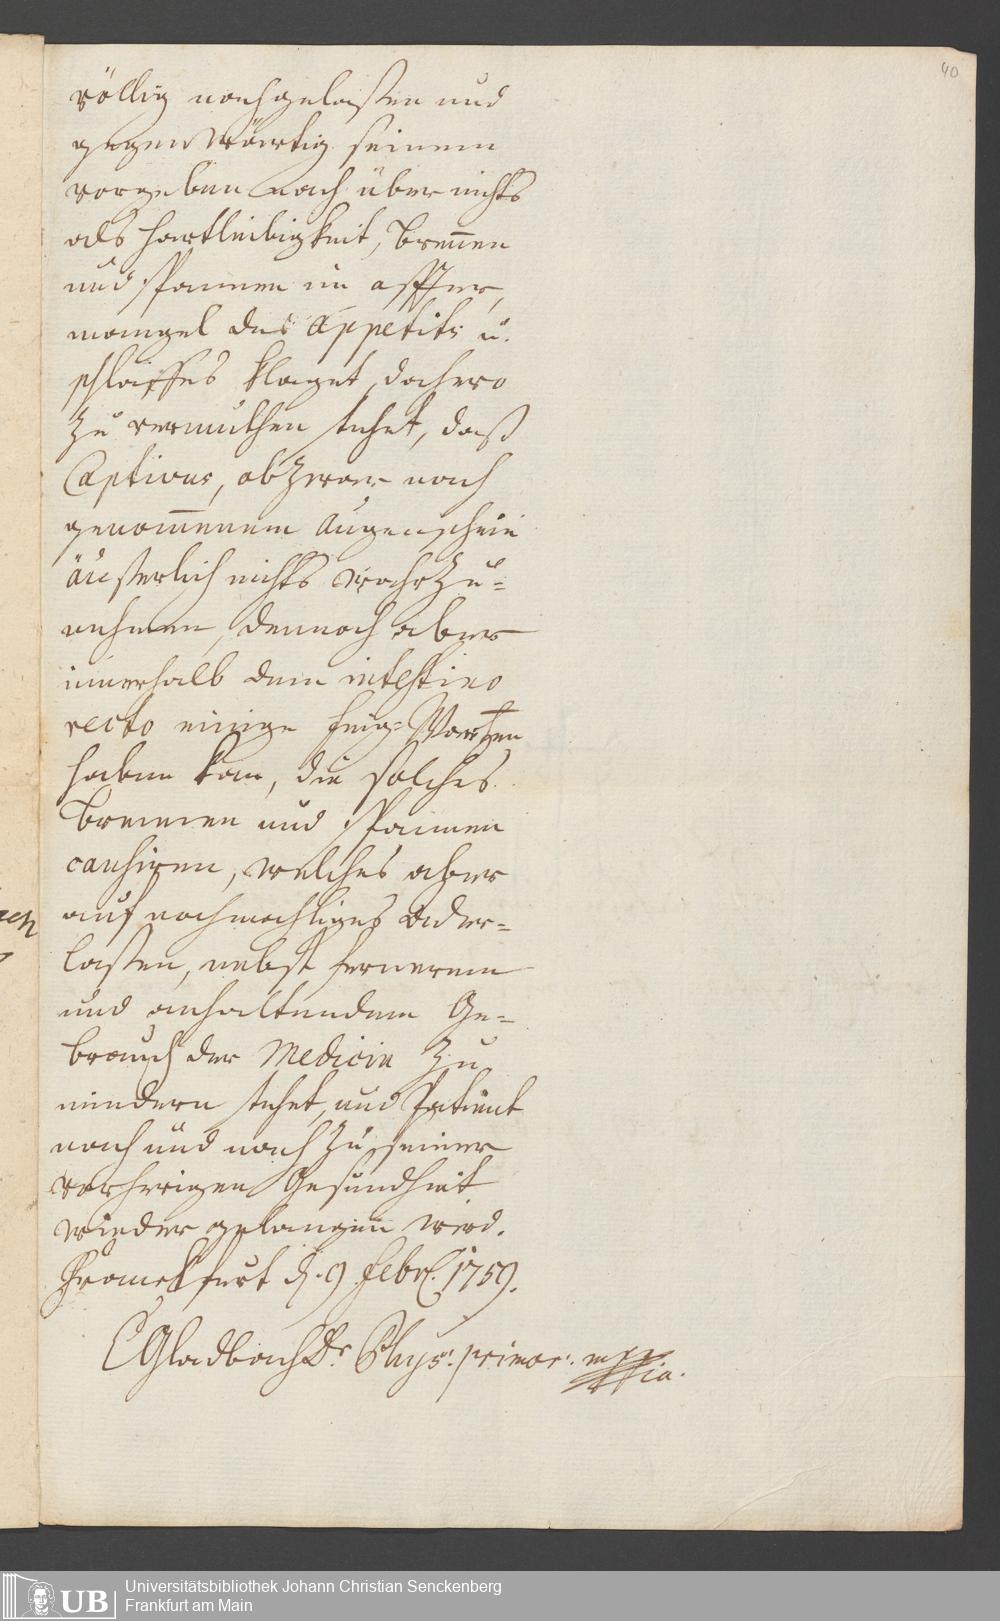 40
völlig nachgelaßen und
gegenwärtig seinem
vorgeben nach über nichts
als hartleibigkeit, bren̅en
und spannen im affter,
mangel des Appetits u.
schlaffes klaget, dahero
zu vermuthen stehet, daß
Captivus, obzwar nach
genom̅enem augenschein
äußerlich nichts wahrzu=
nehmen, dennoch aber
innerhalb dem intestino
recto einige feig=Wartzen
haben kan, die solches
brennen und spannen
causiren, welches aber
auf nochmahliges ader=
laßen, nebst fernerem
und anhaltendem Ge=
brauch der Medicin zu
mindern stehet, und Patient
nach und nach zu seiner
vorherigen Gesundheit
wieder gelangen werd.
Franckfurt d. 9 Febr. 1759.
CGladbach Dr Phys: primar: mppia.
UB
Universitätsbibliothek Johann Christian Senckenberg
Frankfurt am Main